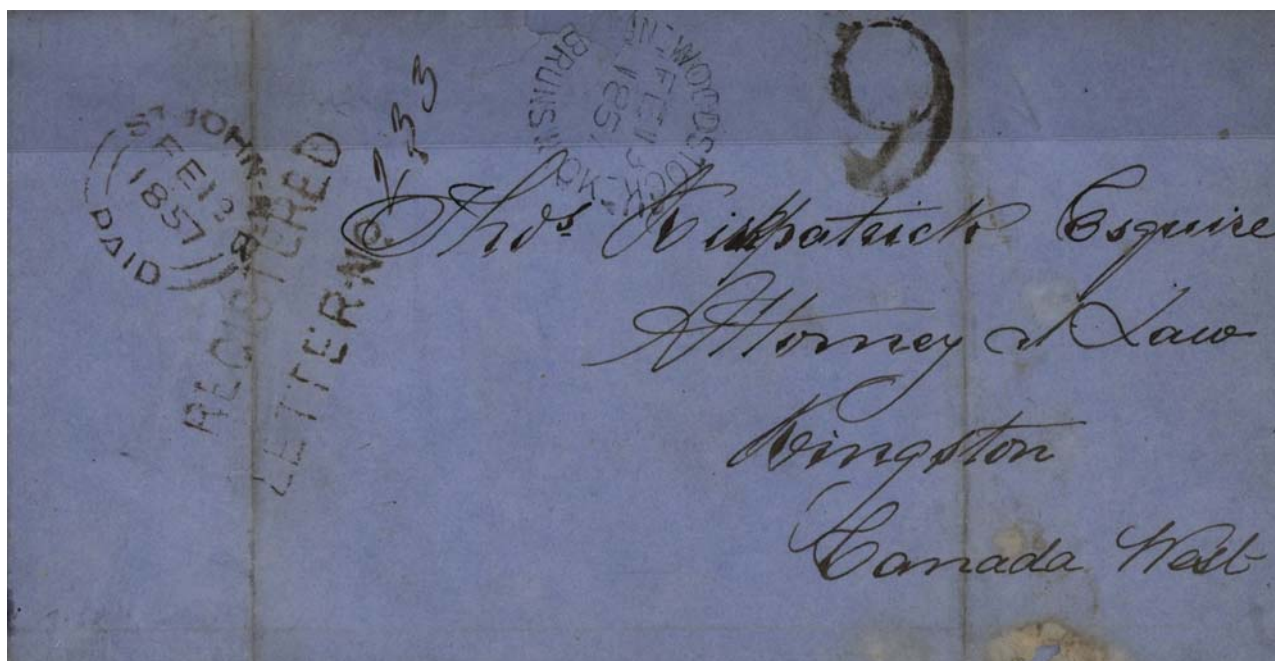 ST JOHN
FE 13
1857
PAID
REGISTERED
LETTER No
WOODSTOCK
FE
185
NEW BRUNSWICK
9
Thos Kirkpatrick Esquire
Attorney at Law
Kingston
Canada West